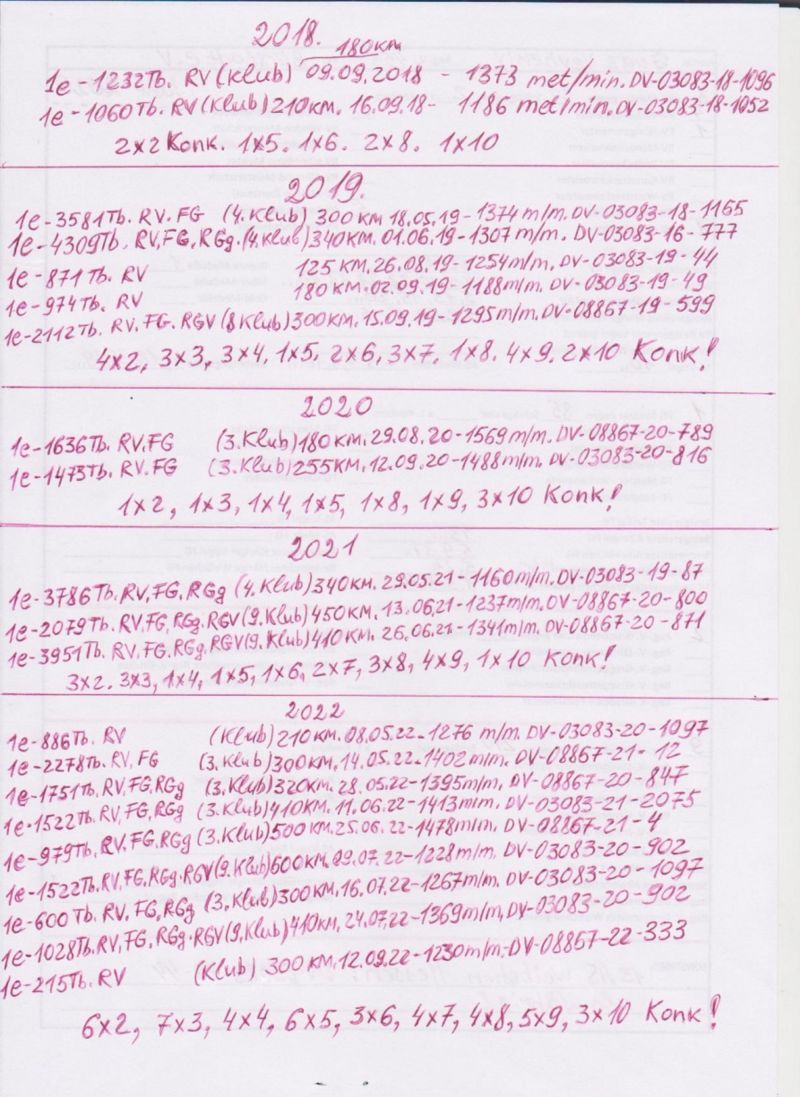 2018.
180км
1е-1232Tb. RV(Klub) 09.09.2018 - 1373 met/min. DV-03083-18-1096
1е-1060Tb. RV(Klub) 210км. 16.09.18- 1186 met/min. DV-03083-18-1052
2x2 Конк. 1x5. 1x6. 2x8. 1x10
2019.
1е-3581Tb. RV. FG (4. Klub) 300 км 18.05.19-1374 m/m. DV-03083-18-1165
1е-4309Tb. RV, FG, RGg. (4. Klub) 340км. 01.06.19-1307 m/m. DV-03083-16-777
1е-871 Tb. RV 125 км. 26.08.19-1254m/m. DV-03083-19-44
1е-974 Tb. RV 180 км. 02.09.19-1188m/m. DV-03083-19-49
1е-2112Tb. RV. FG. RGV (8 Klub) 300км. 15.09.19-1295m/m. DV-08867-19-599
4x2, 3x3, 3x4, 1x5. 2x6, 3x7, 1x8. 4x9. 2x10 Конк!
2020
1е-1636Tb. RV. FG (3. Klub) 180км. 29.08.20-1569m/m. DV-08867-20-789
1е-1473Tb. RV. FG (3. Klub) 255км. 12.09.20-1488m/m. DV-03083-20-816
1x2, 1x3, 1x4, 1x5, 1x8, 1x9, 3x10 Конк!
2021
1е-3786Tb. RV, FG, RGg (4. Klub) 340км. 29.05.21-1160m/m. DV-03083-19-87
1е-2079Tb. RV, FG, RGg. RGV(9. Klub) 450км. 13.06.21-1237m/m. DV-08867-20-800
1е-3951Tb. RV, FG. RGg. RGV(9. Klub) 410км. 26.06.21-1341m/m. DV-08867-20-871
3x2. 3x3, 1x4, 1x5, 1x6, 2x7, 3x8, 4x9, 1x10 Конк!
2022
1е-886Tb. RV (Klub) 210км. 08.05.22-1276 m/m. DV-03083-20-1097
1е-2278Tb. RV, FG (3. Klub) 300км, 14.05.22-1402m/m. DV-08867-21-12
1е-1751Tb. RV, FG, RGg (3. Klub) 320км. 28.05.22-1395m/m. DV-08867-20-847
1е-1522Tb. RV, FG, RGg (3. Klub) 410км. 11.06.22-1413m/m. DV-03083-21-2075
1е-979Tb. RV. FG, RGg (3. Klub) 500км. 25.06.22-1478m/m. DV-08867-21-4
1е-1522Tb. RV, FG, RGg. RGV(9. Klub) 600км. 09.07.22-1228m/m. DV-03083-20-902
1е-600Tb. RV, FG, RGg (3. Klub) 300км, 16.07.22-1267m/m. DV-03083-20-1097
1е-1028Tb. RV, FG, RGg. RGV(9. Klub) 410км, 24.07.22-1369m/m, DV-03083-20-902
1е-215Tb. RV (Klub) 300км, 12.09.22-1230m/m. DV-08867-22-333
6x2, 7x3, 4x4, 6x5, 3x6, 4x7, 4x8, 5x9, 3x10 Конк!